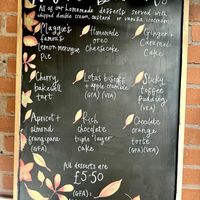 All of our homemade desserts served with
whipped double cream, custard or vanilla icecream
Maggie's famous lemon meringue Pie
Homemade oreo Cheesecake
Ginger + Caramel Cake
Cherry bakewell tart
Lotus biscoff + apple crumble (GFA) (VEA)
Sticky toffee Pudding (VEA)
Apricot + almond frangipane (GFA)
Rich chocolate triple layer cake
Chocolate orange torte (GF) (VEA)
All desserts are
£5.50
(GFA) =